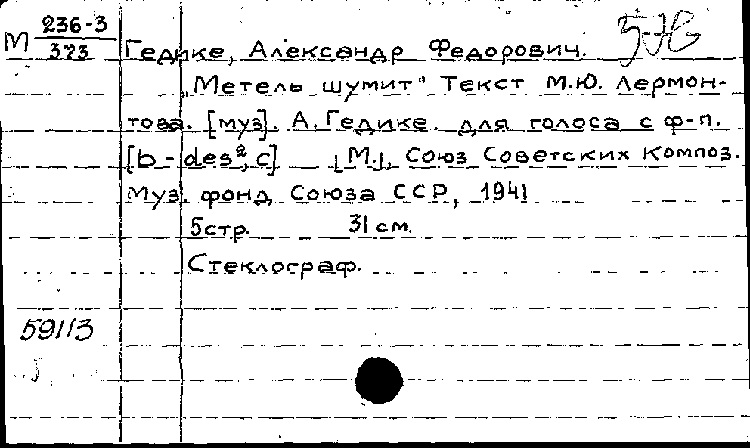 М 236-3
373
Гедике, Александр Федорович.
„Метель шумит" Текст М.Ю. Лермон-
това. [муз]. А. Гедике. для голоса с ф-п.
[b - des², c] [М.], Союз Советских Композ.
Муз. фонд Союза ССР, 1941
5 стр. 31 см.
Стеклограф.
59113